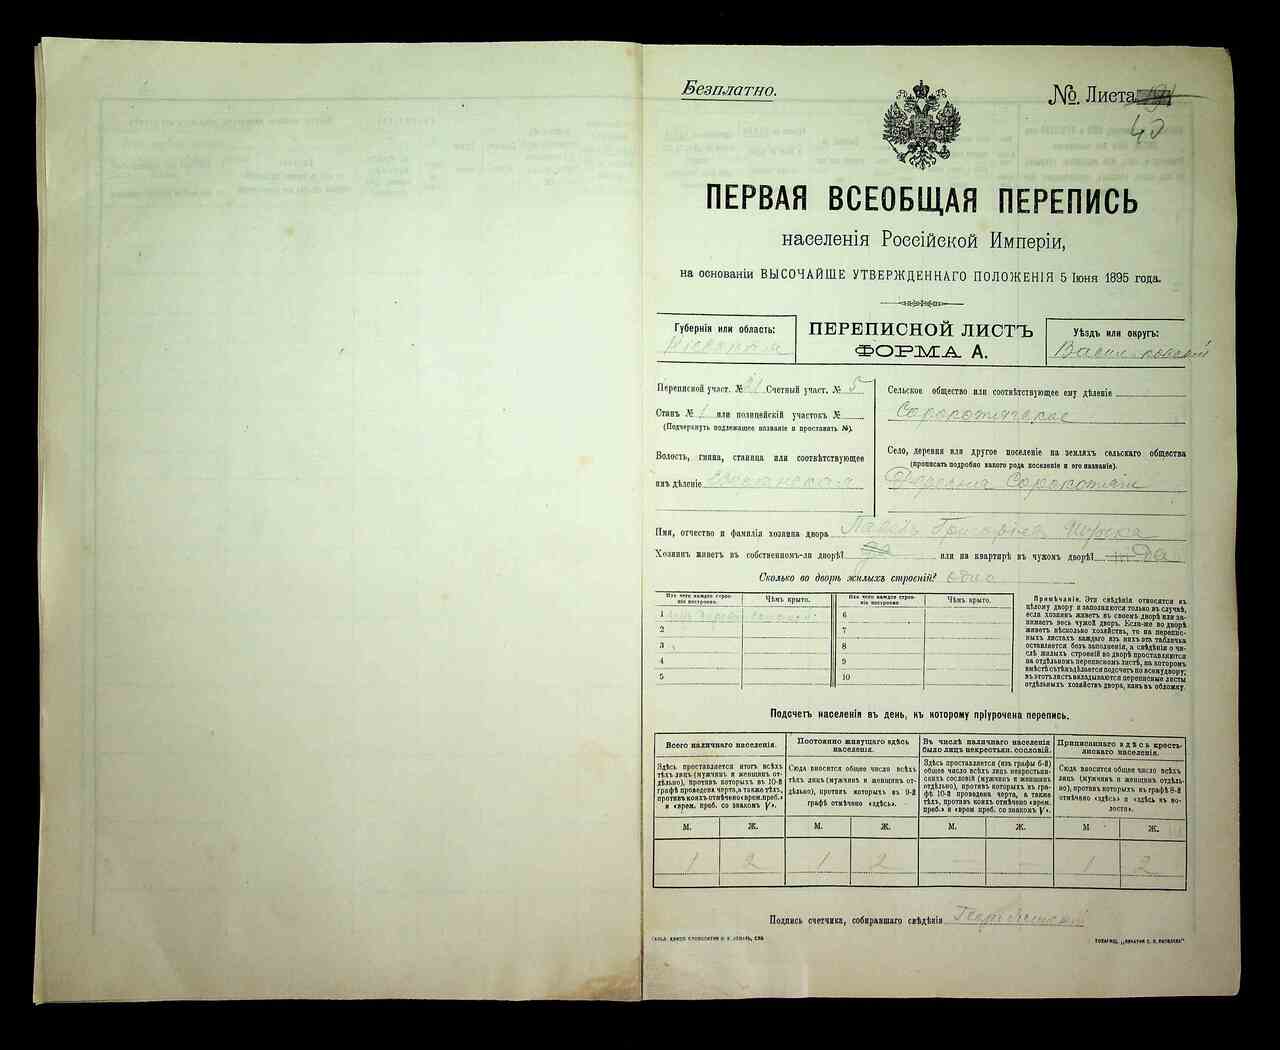 Безплатно.
№ Листа
40
ПЕРВАЯ ВСЕОБЩАЯ ПЕРЕПИСЬ
населенія Россійской Имперіи,
на основаніи ВЫСОЧАЙШЕ УТВЕРЖДЕННАГО ПОЛОЖЕНІЯ 5 Іюня 1895 года.
Губернія или область:
Кіевская
ПЕРЕПИСНОЙ ЛИСТЪ
ФОРМА А.
Уѣздъ или округъ:
Васильковскій
Переписной участ. № 21 Счетный участ. № 5
Станъ № 1 или полицейскій участокъ №
(Подчеркнуть подлежащее названіе и проставить №).
Волость, гмина, станица или соотвѣтствующее
имъ дѣленіе
Сельское общество или соотвѣтствующее ему дѣленіе
Сорокотяжское
Село, деревня или другое поселеніе на земляхъ сельскаго общества
(прописать подробно какого рода поселеніе и его названіе).
Деревня Сорокотяги
Имя, отчество и фамилія хозяина двора Павелъ Григорьевъ
Хозяинъ живетъ въ собственномъ-ли дворѣ? да или на квартирѣ въ чужомъ дворѣ? да
Сколько во дворѣ жилыхъ строеній? одно
Изъ чего каждое строеніе построено.
Чѣмъ крыто.
Изъ чего каждое строеніе построено
Чѣмъ крыто.
1 соломой
2
3
4
5
6
7
8
9
10
Примѣчаніе. Эти свѣдѣнія относятся къ
цѣлому двору и заполняются только въ случаѣ,
если хозяинъ живетъ въ своемъ дворѣ или за-
нимаетъ весь чужой дворъ. Если-же во дворѣ
живетъ нѣсколько хозяйствъ, то на перепис-
ныхъ листахъ каждаго изъ нихъ эта табличка
оставляется безъ заполненія, а свѣдѣнія о чи-
слѣ жилыхъ строеній во дворѣ проставляются
на отдѣльномъ переписномъ листѣ, на которомъ
вмѣстѣ съ тѣмъ дѣлается подсчетъ по всему двору;
въ этотъ листъ вкладываются переписные листы
отдѣльныхъ хозяйствъ двора, какъ въ обложку.
Подсчетъ населенія въ день, къ которому пріурочена перепись.
Всего наличнаго населенія.
Здѣсь проставляется итогъ всѣхъ
тѣхъ лицъ (мужчинъ и женщинъ от-
дѣльно), противъ которыхъ въ 10-й
графѣ проведена черта, а также тѣхъ,
противъ коихъ отмѣчено «врем. преб.»
и «врем. преб. со знакомъ V».
Постоянно живущаго здѣсь
населенія.
Сюда вносится общее число всѣхъ
тѣхъ лицъ (мужчинъ и женщинъ от-
дѣльно), противъ которыхъ въ 9-й
графѣ отмѣчено «здѣсь».
Въ числѣ наличнаго населенія
было лицъ некрестьян. сословій.
Здѣсь проставляется (изъ графы 6-й)
общее число всѣхъ лицъ некрестьян-
скихъ сословій (мужчинъ и женщинъ
отдѣльно), противъ которыхъ въ гра-
фѣ 10-й проведена черта, а также
тѣхъ, противъ коихъ отмѣчено «врем.
преб.» и «врем преб. со знакомъ V».
Приписаннаго здѣсь кресть-
янскаго населенія.
Сюда вносится общее число всѣхъ
лицъ (мужчинъ и женщинъ отдѣль-
но), противъ которыхъ въ графѣ 8-й
отмѣчено «здѣсь» и «здѣсь въ во-
лости».
М. Ж. М. Ж. М. Ж. М Ж.
1 2 1 2 — — 1 2
Подпись счетчика, собиравшаго свѣдѣнія